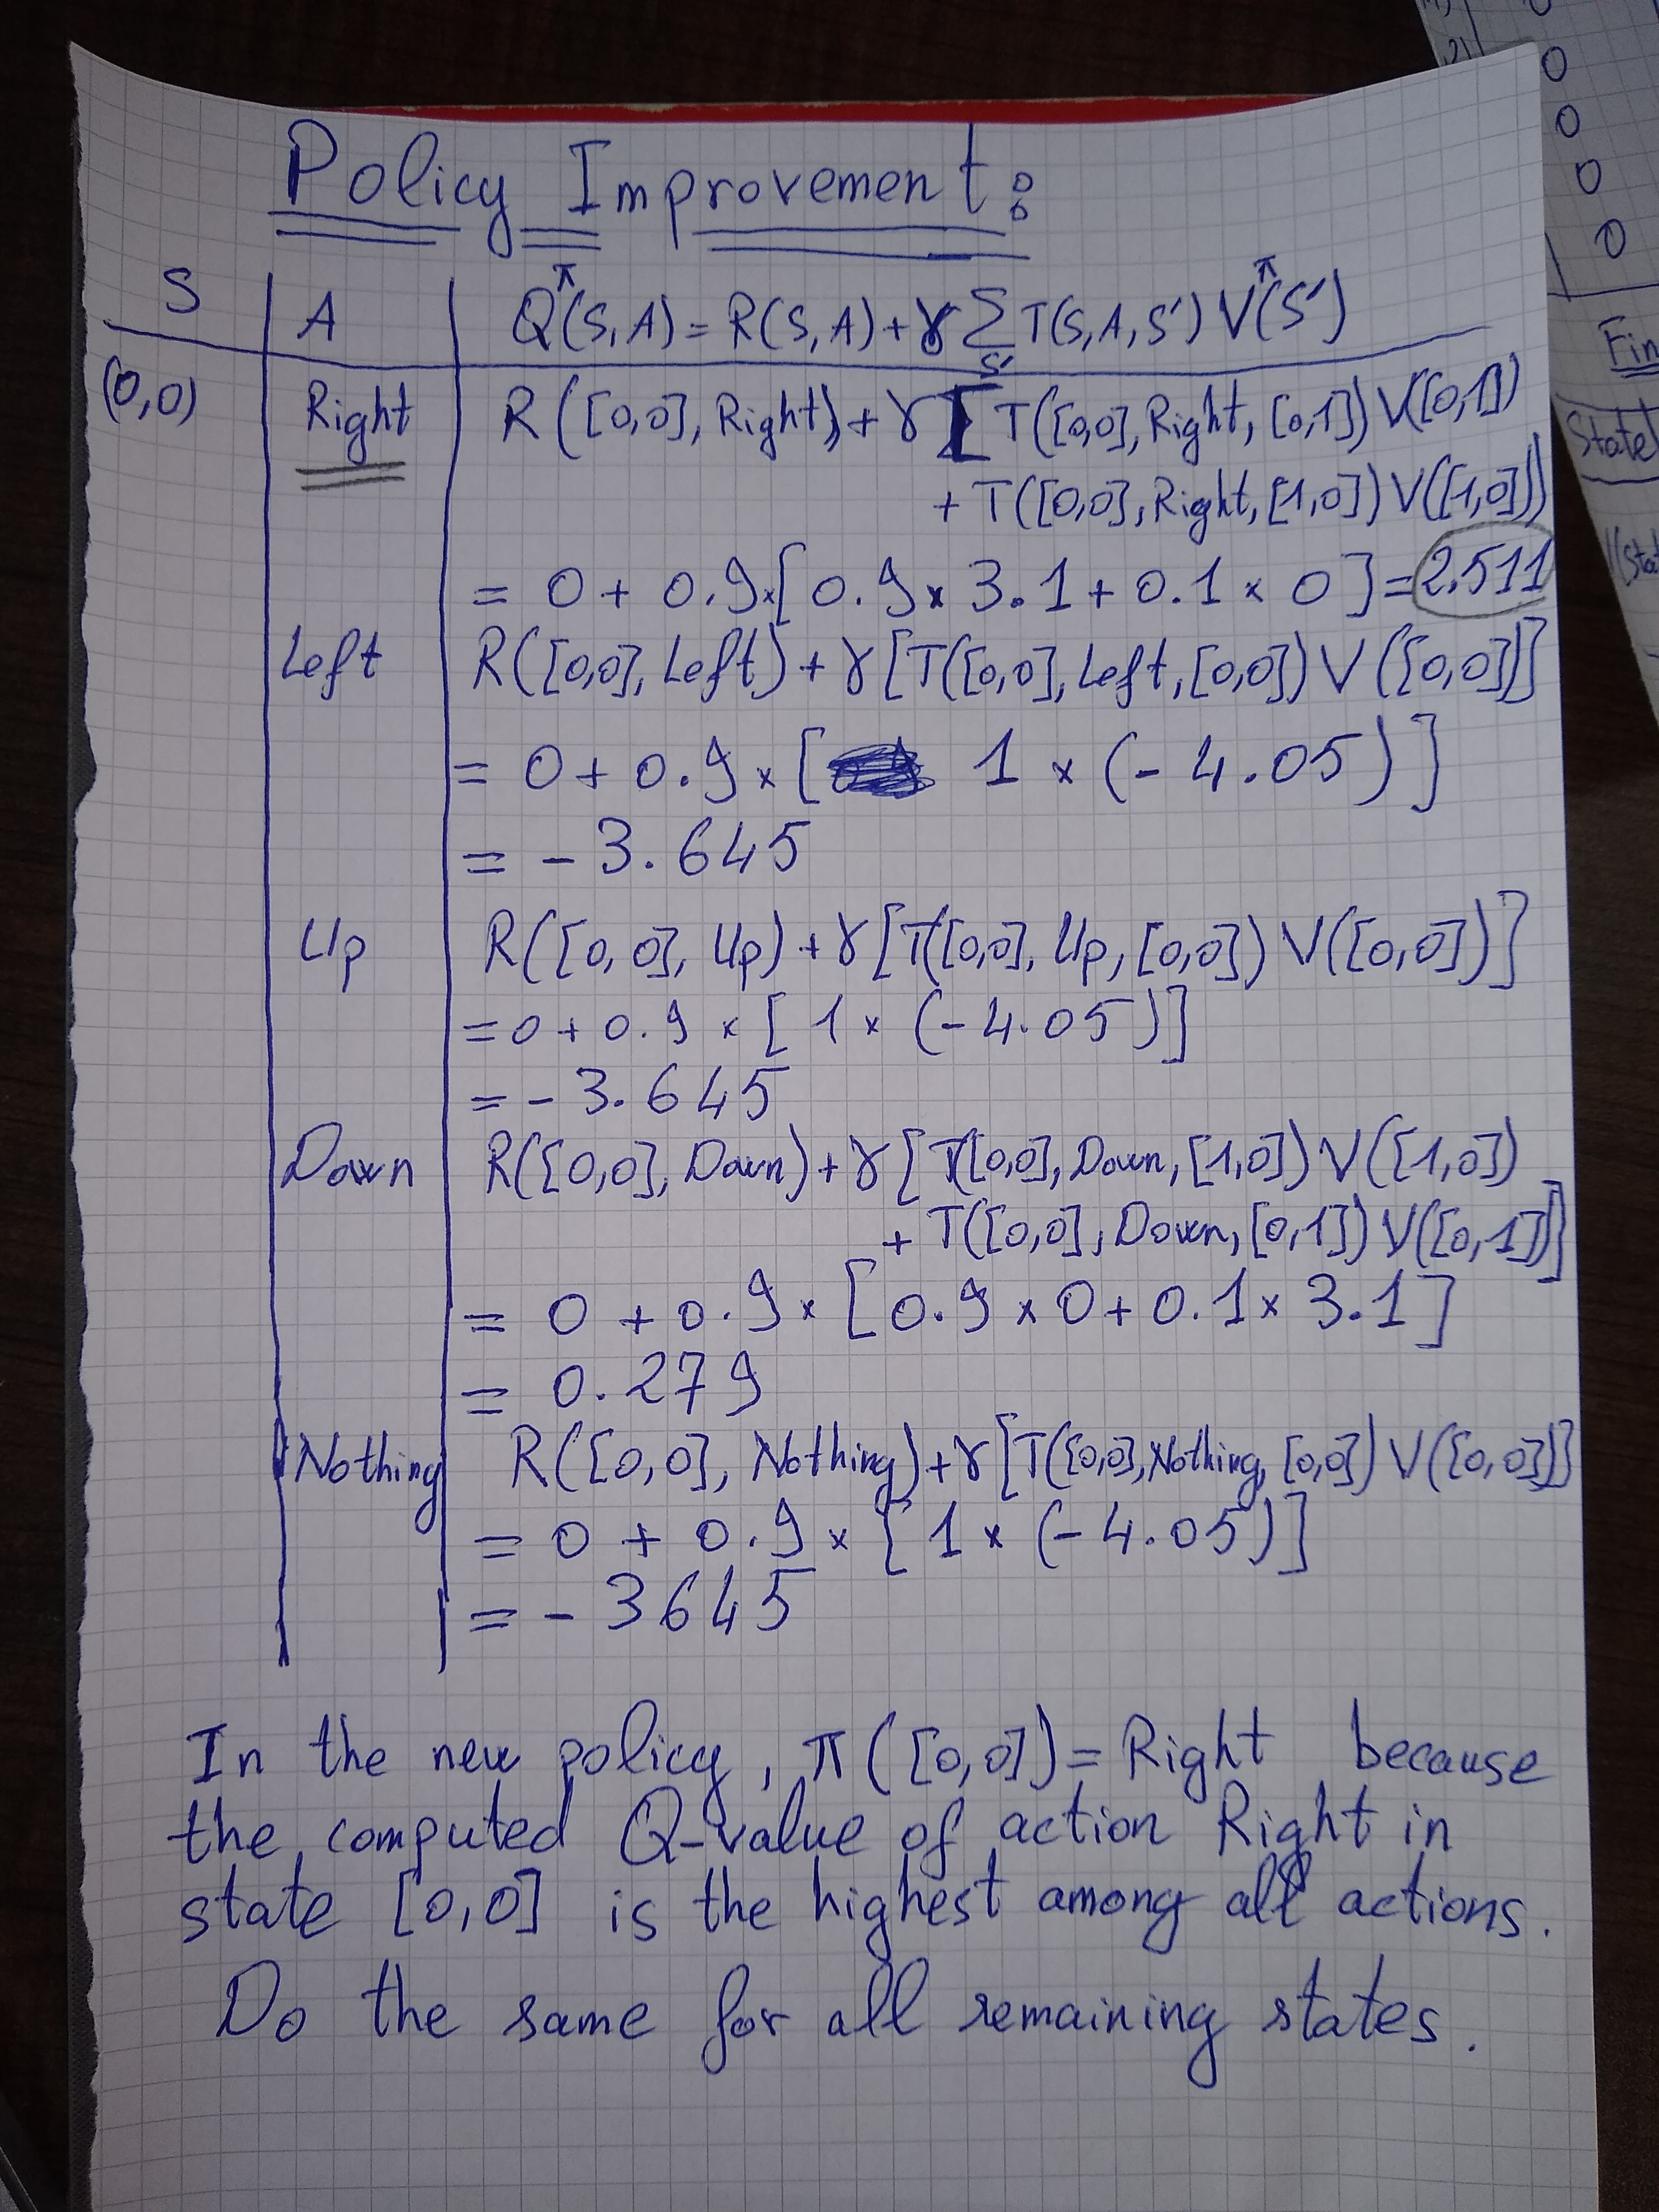 Policy Improvement:
S A Q^π(S,A) = R(S,A) + γ Σ_S' T(S,A,S') V^π(S')
(0,0) Right R([0,0], Right) + γ [T([0,0], Right, [0,1]) V([0,1])
+ T([0,0], Right, [1,0]) V([1,0])]
= 0 + 0.9 × [0.9 × 3.1 + 0.1 × 0] = 2.511
Left R([0,0], Left) + γ [T([0,0], Left, [0,0]) V([0,0])]
= 0 + 0.9 × [ 1 × (-4.05)]
= -3.645
Up R([0,0], Up) + γ [T([0,0], Up, [0,0]) V([0,0])]
= 0 + 0.9 × [1 × (-4.05)]
= -3.645
Down R([0,0], Down) + γ [T([0,0], Down, [1,0]) V([1,0])
+ T([0,0], Down, [0,1]) V([0,1])]
= 0 + 0.9 × [0.9 × 0 + 0.1 × 3.1]
= 0.279
Nothing R([0,0], Nothing) + γ [T([0,0], Nothing, [0,0]) V([0,0])]
= 0 + 0.9 × [1 × (-4.05)]
= -3645
In the new policy, π([0,0]) = Right because
the computed Q-value of action Right in
state [0,0] is the highest among all actions.
Do the same for all remaining states.
0
0
0
0
State